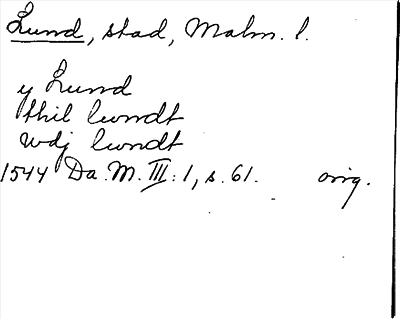 Lund, stad, Malm. l.
y Lund
thil lwndt
wdj lwndt
1544 Da. M. III: 1, s. 61. orig.